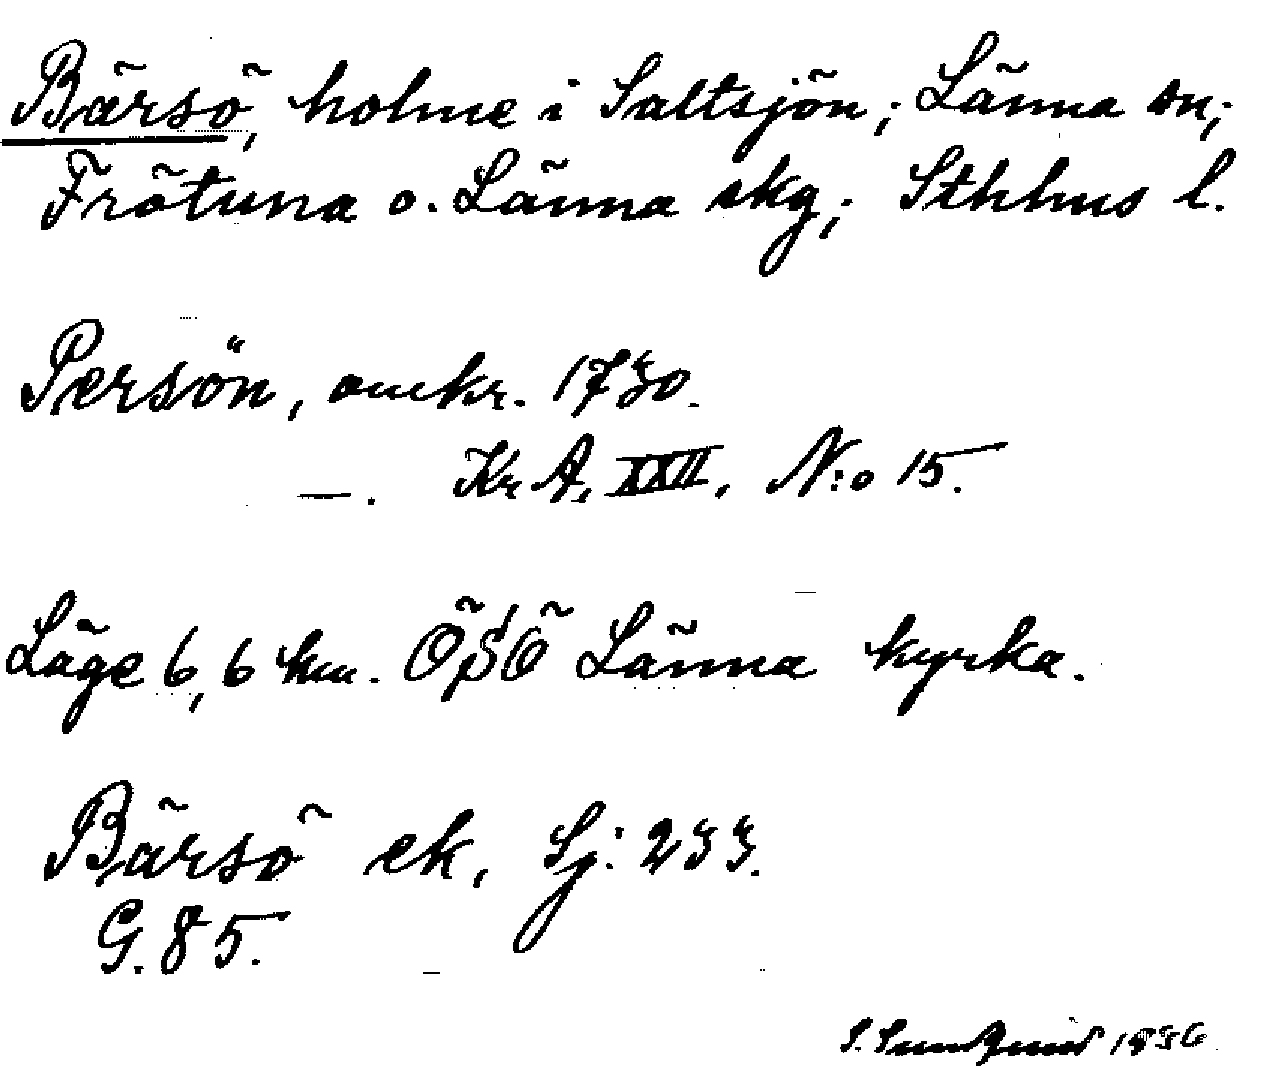 Bärsö, holme i Saltsjön; Länna sn;
Frötuna o. Länna skg; Sthlms l.
Persön, omkr. 1730.
—. KrA, XXII, N:o 15.
Läge 6,6 km. ÖSÖ Länna kyrka.
Bärsö ek, Sj: 233.
G. 85.
S. Sundquist 1936